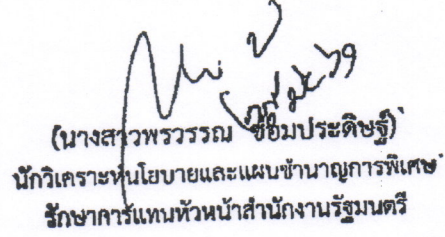 (นางสาวพรวรรณ ซ้อมประดิษฐ์)
นักวิเคราะห์นโยบายและแผนชำนาญการพิเศษ
รักษาการแทนหัวหน้าสำนักงานรัฐมนตรี